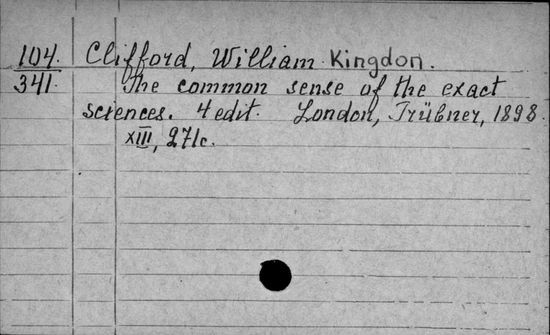 104.
341.
Clifford, William Kingdon.
The common sense of the exact
sciences. 4 edit. London, Trübner, 1898.
XIII, 271c.